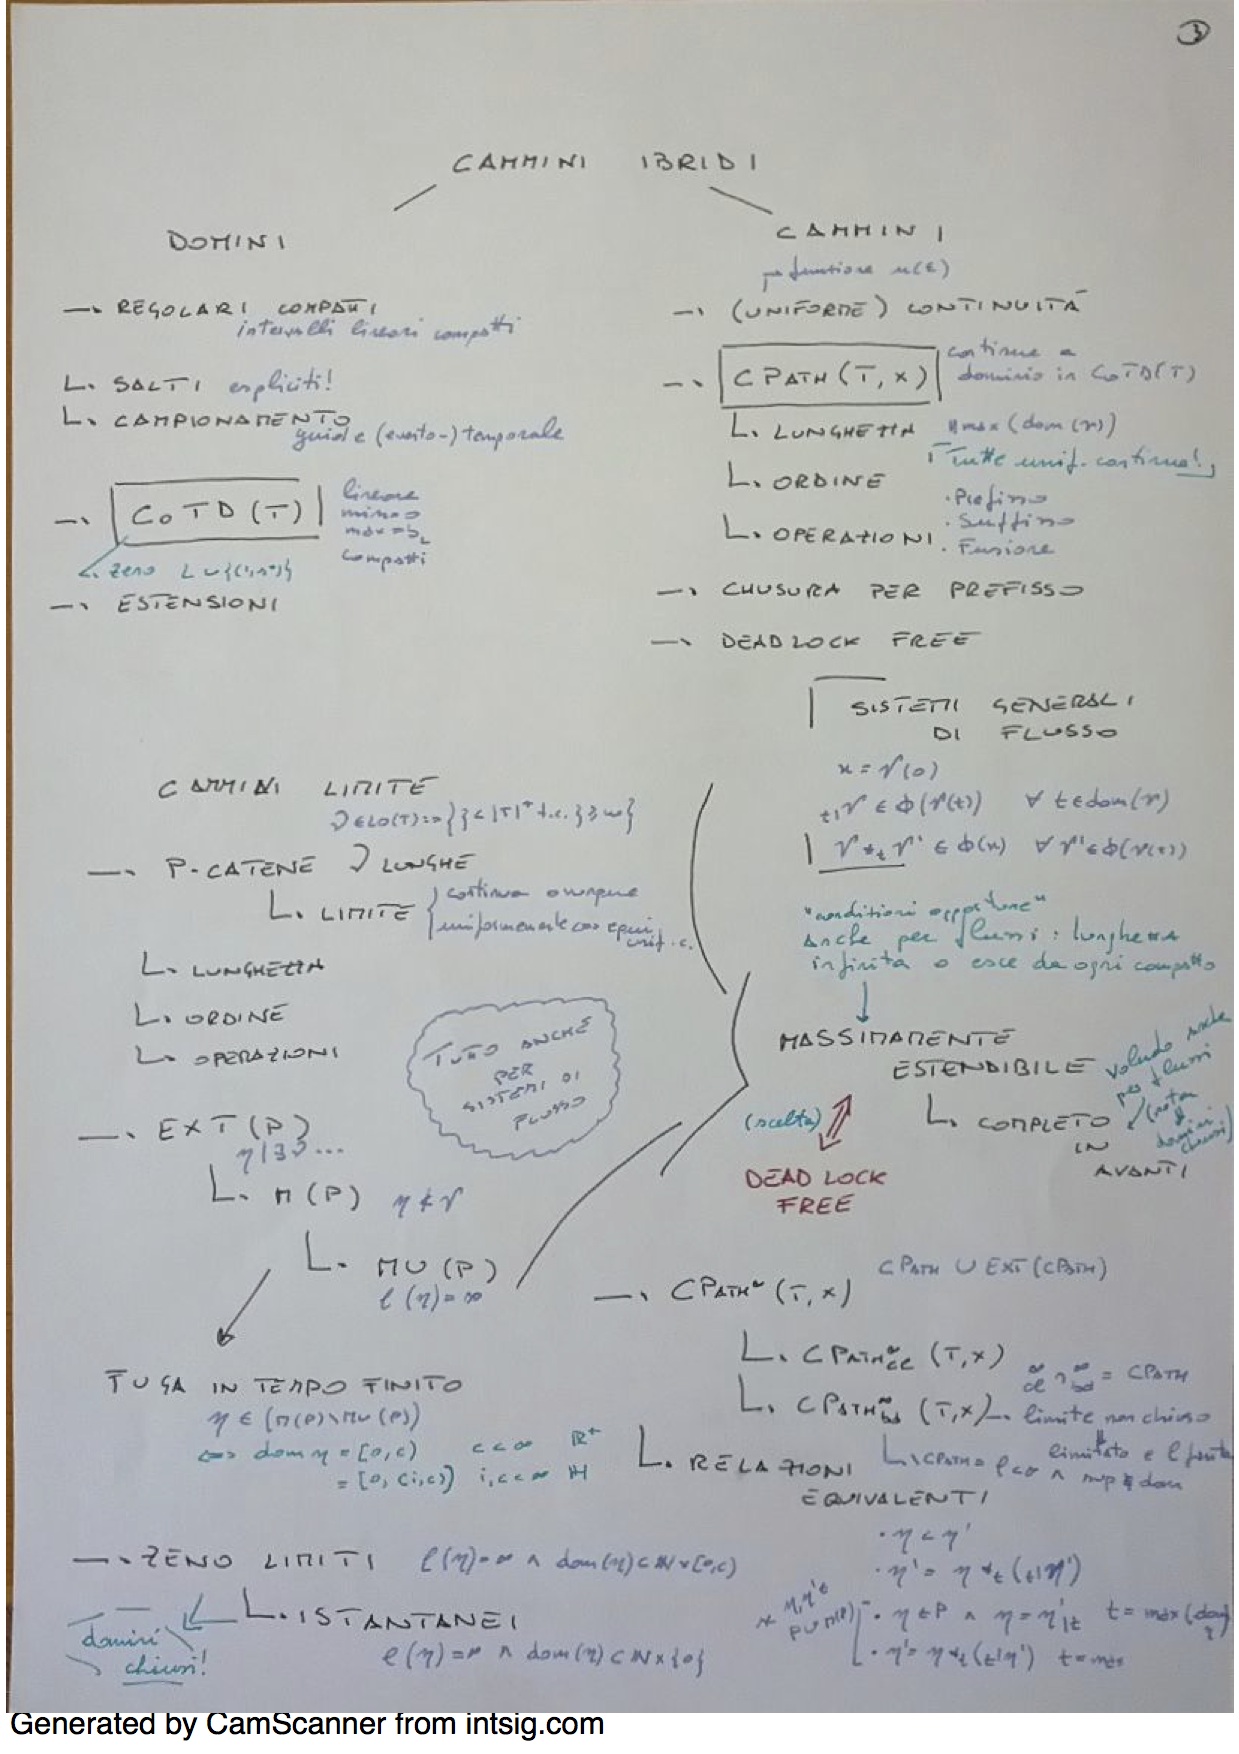 3
CAMMINI IBRIDI
DOMINI
→ REGOLARI COMPATTI
intervalli lineari compatti
L. SALTI espliciti!
L. CAMPIONAMENTO
guide (evento-) temporale
→ CoTD (T)
lineare
min=0
compatti
zeno
→ ESTENSIONI
CAMMINI
funzione
→ (UNIFORME) CONTINUITÀ
→ CPATH (T, X)
continue a
dominio in CoTD(T)
L. LUNGHEZZA max (dom(γ))
! Tutte unif. continue!
L. ORDINE
L. OPERAZIONI
. Prefisso
. Suffisso
. Fusione
→ CHIUSURA PER PREFISSO
→ DEADLOCK FREE
SISTEMI GENERALI
DI FLUSSO
x = γ(0)
t|γ ∈ φ(γ(t)) ∀ t∈dom(γ)
γ *t γ' ∈ φ(x) ∀ γ'∈φ(γ(t))
"condizioni opportune"
Anche per flussi: lunghezza
infinita o esce da ogni compatto
MASSIMAMENTE
ESTENDIBILE
L. COMPLETO
IN
AVANTI
volendo anche
per flussi
(nota
domini
chiusi)
(scelta)
DEAD LOCK
FREE
CAMMINI LIMITE
→ P-CATENE LUNGHE
L. LIMITE
continua ovunque
uniformemente con equi
unif. c.
L. LUNGHEZZA
L. ORDINE
L. OPERAZIONI
TUTTO ANCHE
PER
SISTEMI DI
FLUSSO
→ EXT (P)
L. M (P) η ≮ γ
L. MU (P)
ℓ(η) = ∞
FUGA IN TEMPO FINITO
η ∈ (M(P)\MU(P))
⇔ dom η = [0, c) c<∞ ℝ⁺
= [0, (i,c)) i,c<∞ ℍ
→ CPATH∞ (T, X) CPATH ∪ EXT (CPATH)
L. CPATH∞cl (T, X)
∞cl ∩ ∞bd = CPATH
L. CPATH∞bd (T, X) → limite non chiuso
limitato e ℓ finita
L. RELAZIONI
EQUIVALENTI
. η < η'
. η' = η *t (t|η')
. η ∈ P ∧ η = η'|t t = max (dom η)
. η' = η *t (t|η') t = max
→ ZENO LIMITI ℓ(η)=∞ ∧ dom(η) ⊂ ℕ×[0,c)
L. ISTANTANEI
ℓ(η)=∞ ∧ dom(η) ⊂ ℕ×{0}
domini
chiusi!
Generated by CamScanner from intsig.com